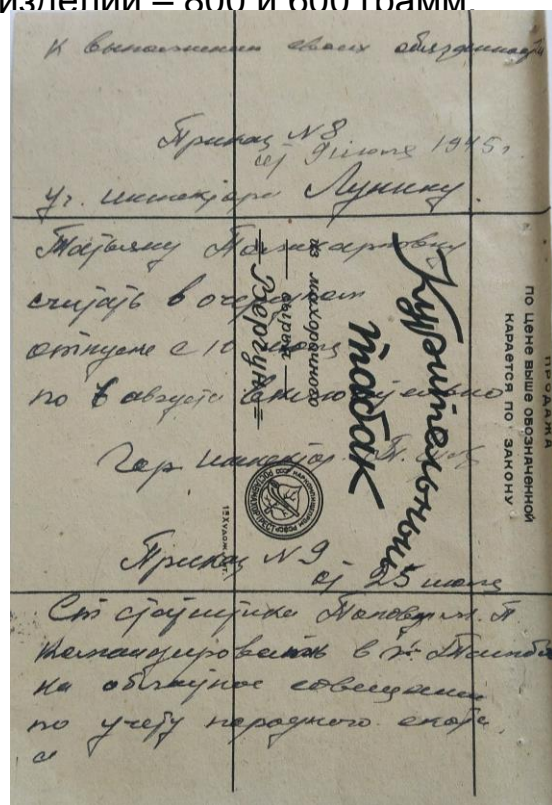 изделий – 800 и 600 грамм.
к выполнению своих обязанностей
Приказ N 8
от 9 июля 1945 г
Уч. инспектора Лунину
Татьяну Поликарповну
считать в очередном
отпуске с 10 июля
по 6 августа включительно
Гор. инспектор
Приказ N 9
от 25 июля
Ст статистика
командировать в г.
на областное совещание
по учету породного скота
с
Курительный
табак
из махорочного
сырья
=Вергун=
ПРОДАЖА
ПО ЦЕНЕ ВЫШЕ ОБОЗНАЧЕННОЙ
КАРАЕТСЯ ПО ЗАКОНУ